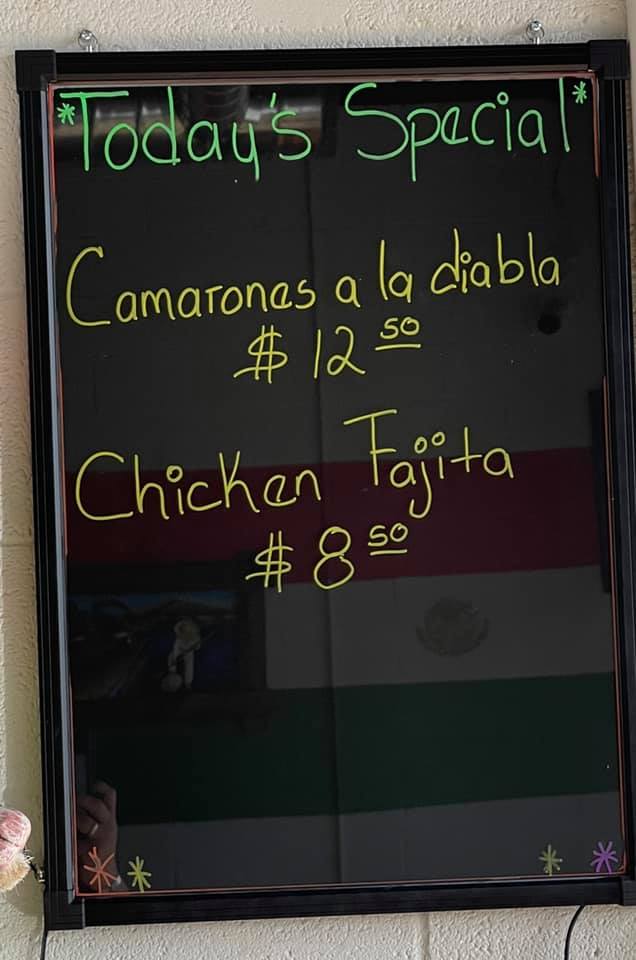 *Today's Special*
Camarones a la diabla
$ 12 50
Chicken Fajita
$ 8 50